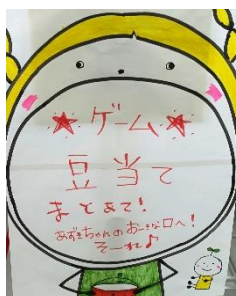 ★ゲーム★
豆当て
まとあて!
あずきちゃんのおーきな口へ!
そーれ♪